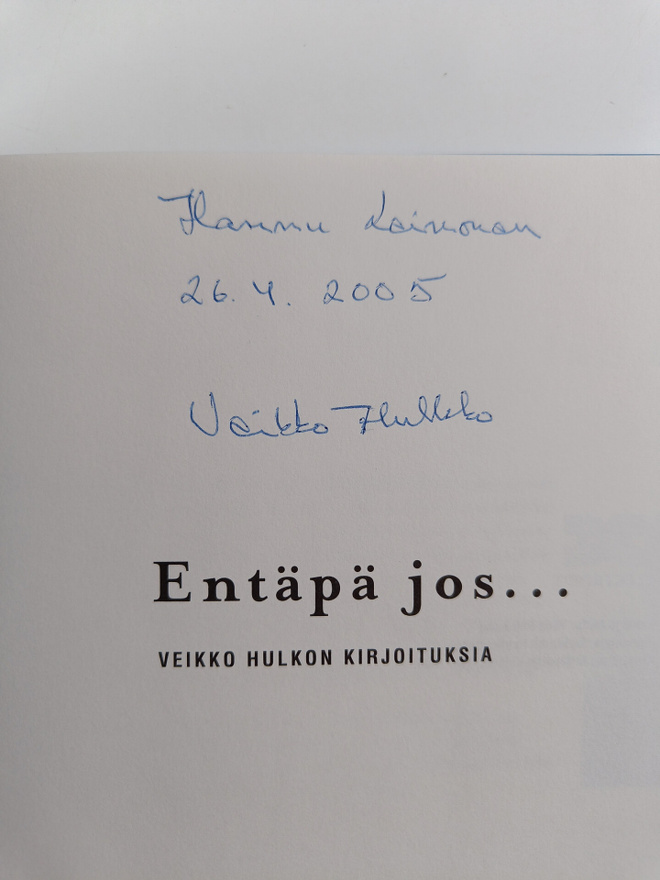 Hannu Lainonen
26.4. 2005
Veikko Hulkko
Entäpä jos...
VEIKKO HULKON KIRJOITUKSIA